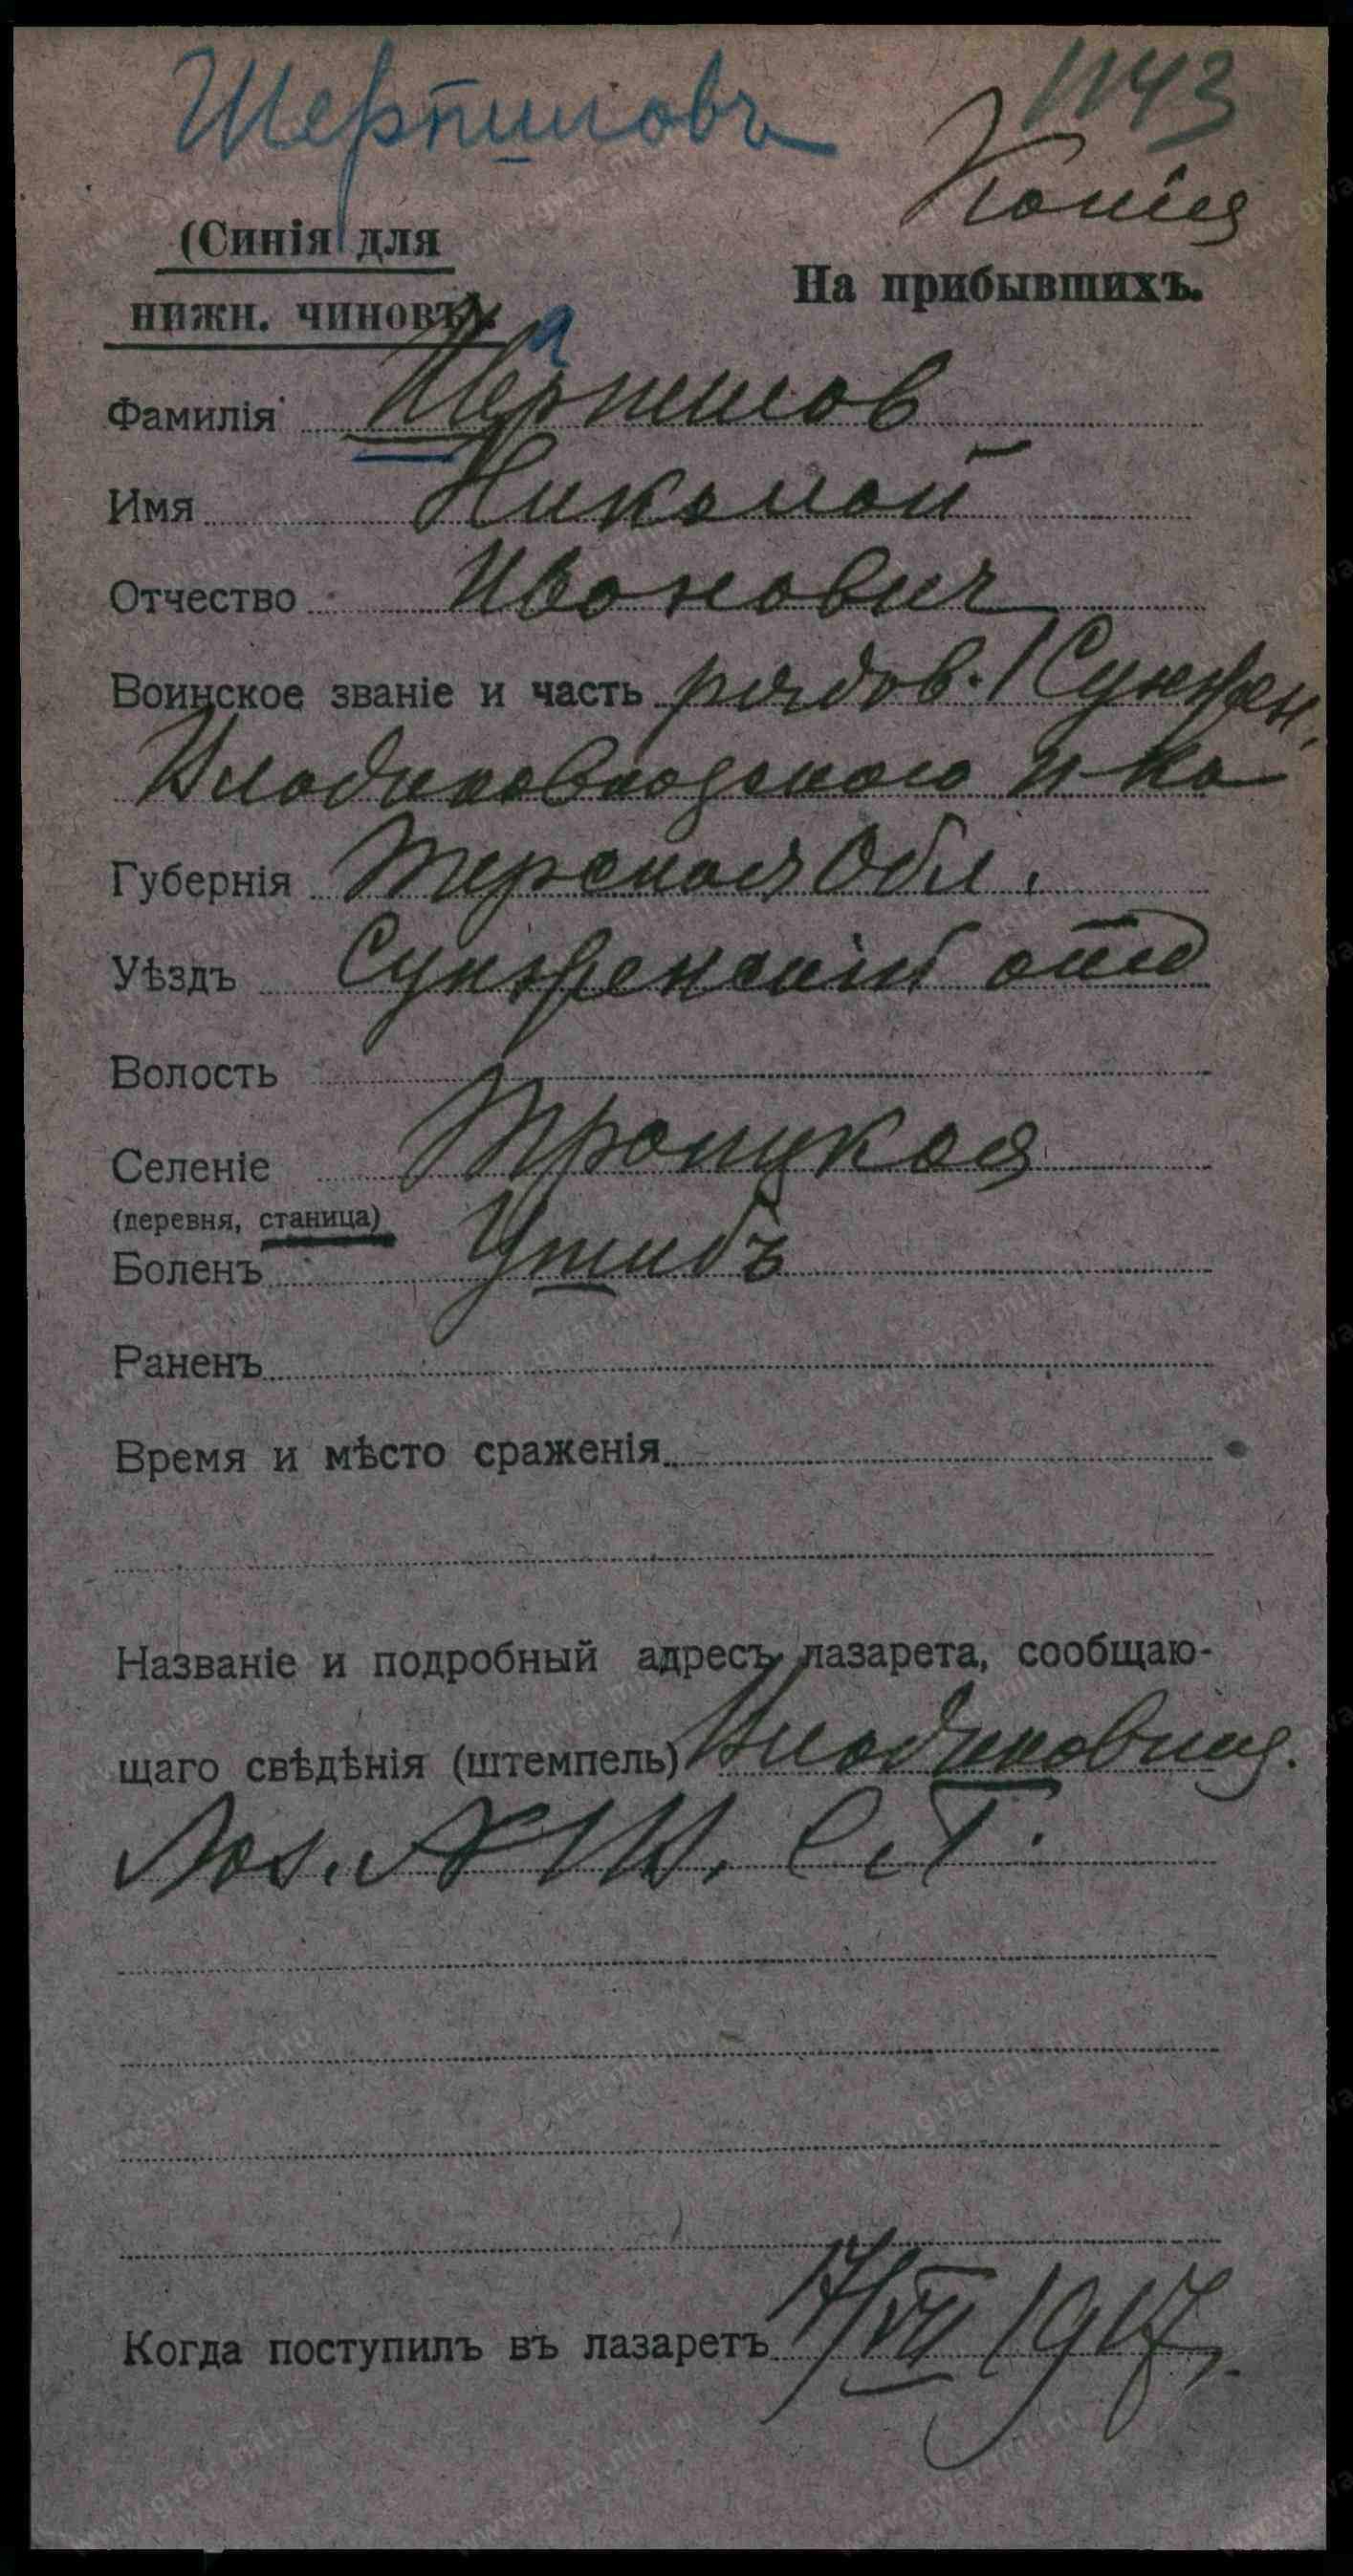 Шерпиловъ 1143
Копія
(Синія для
нижн. чиновъ).
На прибывшихъ.
Фамилія Шерпилов
Имя Николай
Отчество Иванович
Воинское званіе и часть рядов. 1 Сунжен.
Владикавказского п-ка
Губернія Терская Обл.
Уѣздъ Сунженскій отд
Волость
Селеніе Троицкая
(деревня, станица)
Боленъ Ушибъ
Раненъ
Время и мѣсто сраженія
Названіе и подробный адресъ лазарета, сообщаю-
щаго свѣдѣнія (штемпель)
Лаз. С. Г.
Когда поступилъ въ лазаретъ 17/VII 1917.